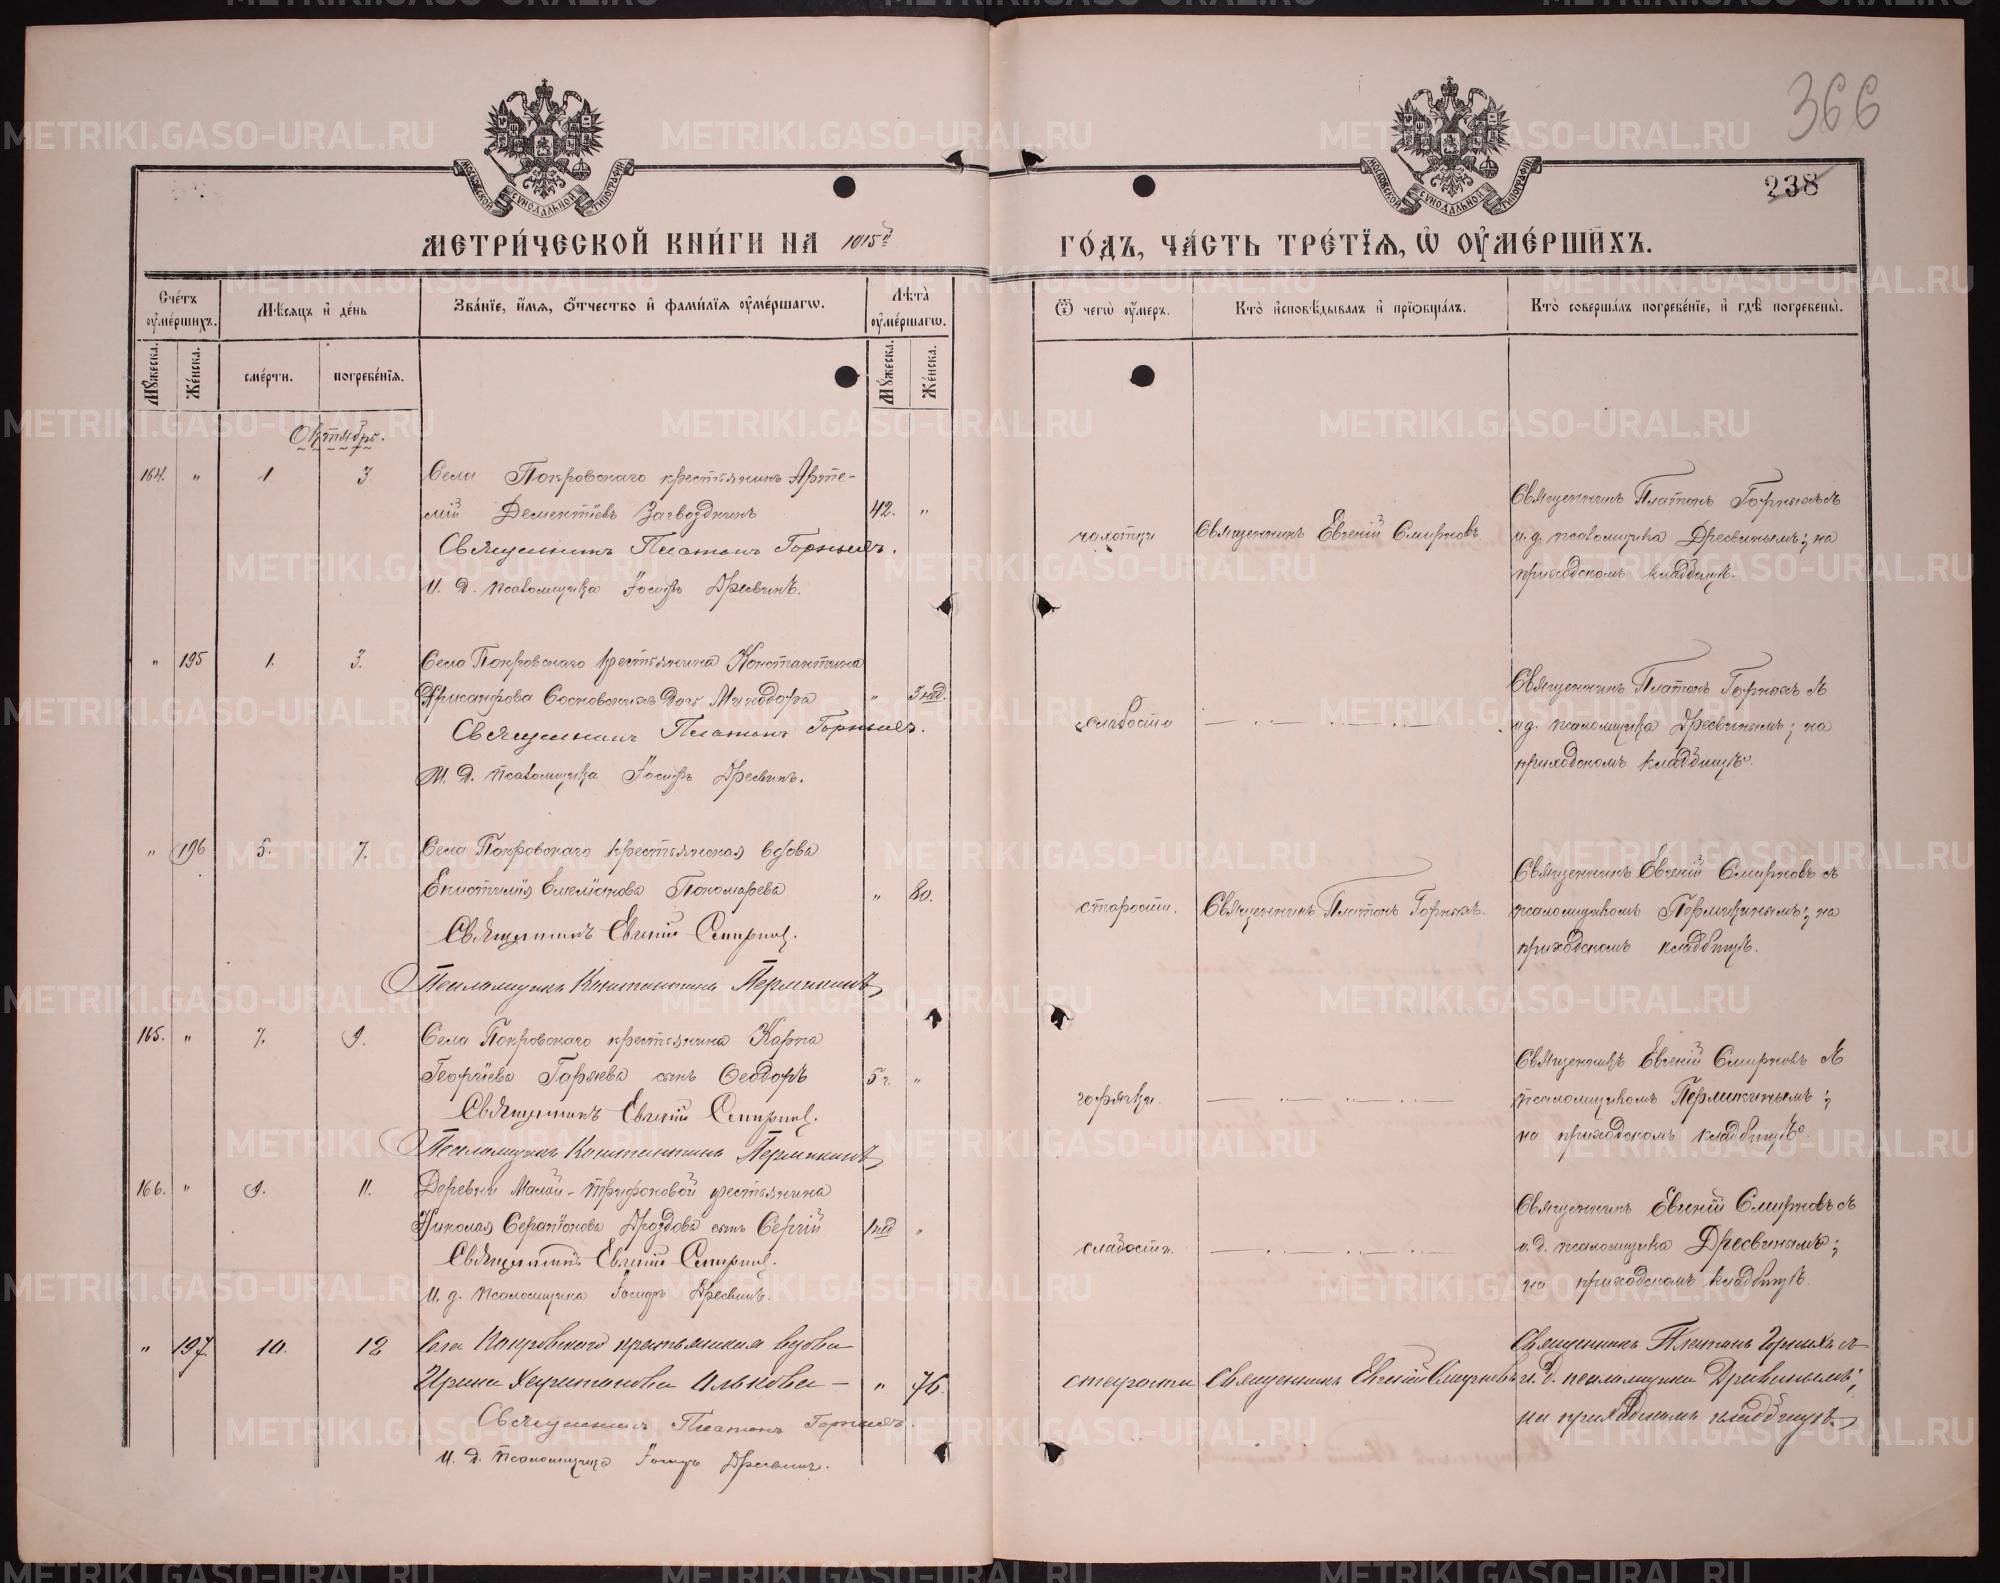 366
238
МОСКОВСКОЙ СѴНОДАЛЬНОЙ ТИПОГРАФІИ
МОСКОВСКОЙ СѴНОДАЛЬНОЙ ТИПОГРАФІИ
МЕТРИ́ЧЕСКОЙ КНИ́ГИ НА 1915й ГО́ДЪ, ЧА́СТЬ ТРЕ́ТІѦ, Ѡ ОУМЕ́РШИХЪ.
Сче́тъ оумершихъ.
Мѣ́сѧцъ и де́нь
Зва́нїе, и́мѧ, о́тчество и фами́лїѧ оуме́ршагѡ.
Лѣта̀ оуме́ршагѡ.
Ѿ чегѡ̀ оу́меръ.
Кто̀ исповѣ́дывалъ и прїѡбща́лъ.
Кто̀ соверша́лъ погребе́нїе, и гдѣ̀ погребены̀.
Мꙋ́жеска.
Же́нска.
сме́рти.
погребе́нїѧ.
Мꙋ́жеска.
Же́нска.
Октябрь.
164. " 1 3. Села Покровскаго крестьянинъ Арте-
мій Дементіевъ Загвоздкинъ 42. "
Священникъ Платонъ Горныхъ.
И. д. псаломщика Іосифъ Дресвинъ.
чахотки
Священникъ Евгеній Смирновъ
Священникъ Платонъ Горныхъ съ
и. д. псаломщика Дресвинымъ; на
приходскомъ кладбищѣ.
" 195 1. 3. Села Покровскаго крестьянина Константина
Никанфова Сосновскихъ дочь Минодора " 3 нед.
Священникъ Платонъ Горныхъ.
И. д. псаломщика Іосифъ Дресвинъ.
слабости
Священникъ Платонъ Горныхъ съ
и д. псаломщика Дресвинымъ; на
приходскомъ кладбищѣ.
" 196 5. 7. Села Покровскаго крестьянская вдова
Епистимія Емеліанова Пономарева " 80.
Священникъ Евгеній Смирновъ.
Псаломщикъ Константинъ Пермикинъ
старости.
Священникъ Платонъ Горныхъ.
Священникъ Евгеній Смирновъ съ
псаломщикомъ Пермикинымъ; на
приходскомъ кладбищѣ.
165. " 7. 9. Села Покровскаго крестьянина Карпа
Георгіева Горяева сынъ Ѳеодоръ 5 г. "
Священникъ Евгеній Смирновъ.
Псаломщикъ Константинъ Пермикинъ
горячки.
Священникъ Евгеній Смирновъ съ
псаломщикомъ Пермикинымъ;
на приходскомъ кладбищѣ.
166. " 9. 11. Деревни Малой-Трифоновой крестьянина
Николая Серапіонова Дроздова сынъ Сергій 1 нед "
Священникъ Евгеній Смирновъ.
И. д. псаломщика Іосифъ Дресвинъ.
слабости.
Священникъ Евгеній Смирновъ съ
и. д. псаломщика Дресвинымъ;
на приходскомъ кладбищѣ.
" 197. 10. 12 Села Покровскаго крестьянская вдова
Ирина Харитонова Алькова — " 76.
Священникъ Платонъ Горныхъ.
И. д. псаломщика Іосифъ Дресвинъ.
старости
Священникъ Евгеній Смирновъ
Священникъ Платонъ Горныхъ съ
и. д. псаломщика Дресвинымъ;
на приходскомъ кладбищѣ
METRIKI.GASO-URAL.RU